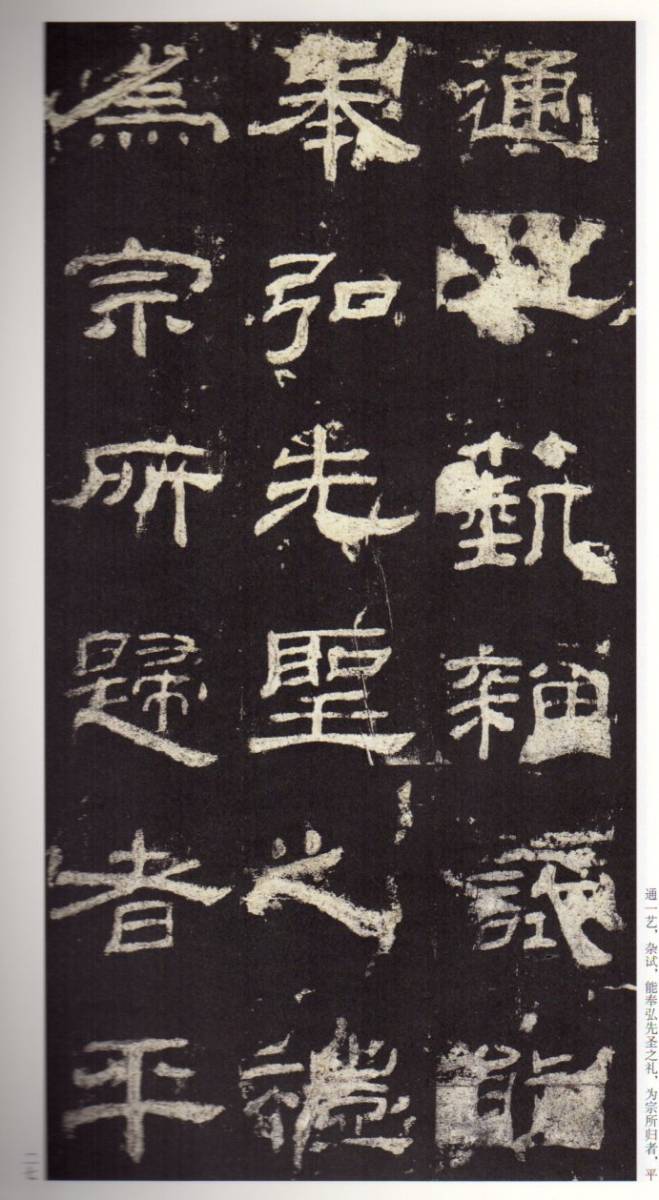 通一藝雜試能
奉弘先聖之禮
為宗所歸者平
通一艺，杂试，能奉弘先圣之礼，为宗所归者，平
二七